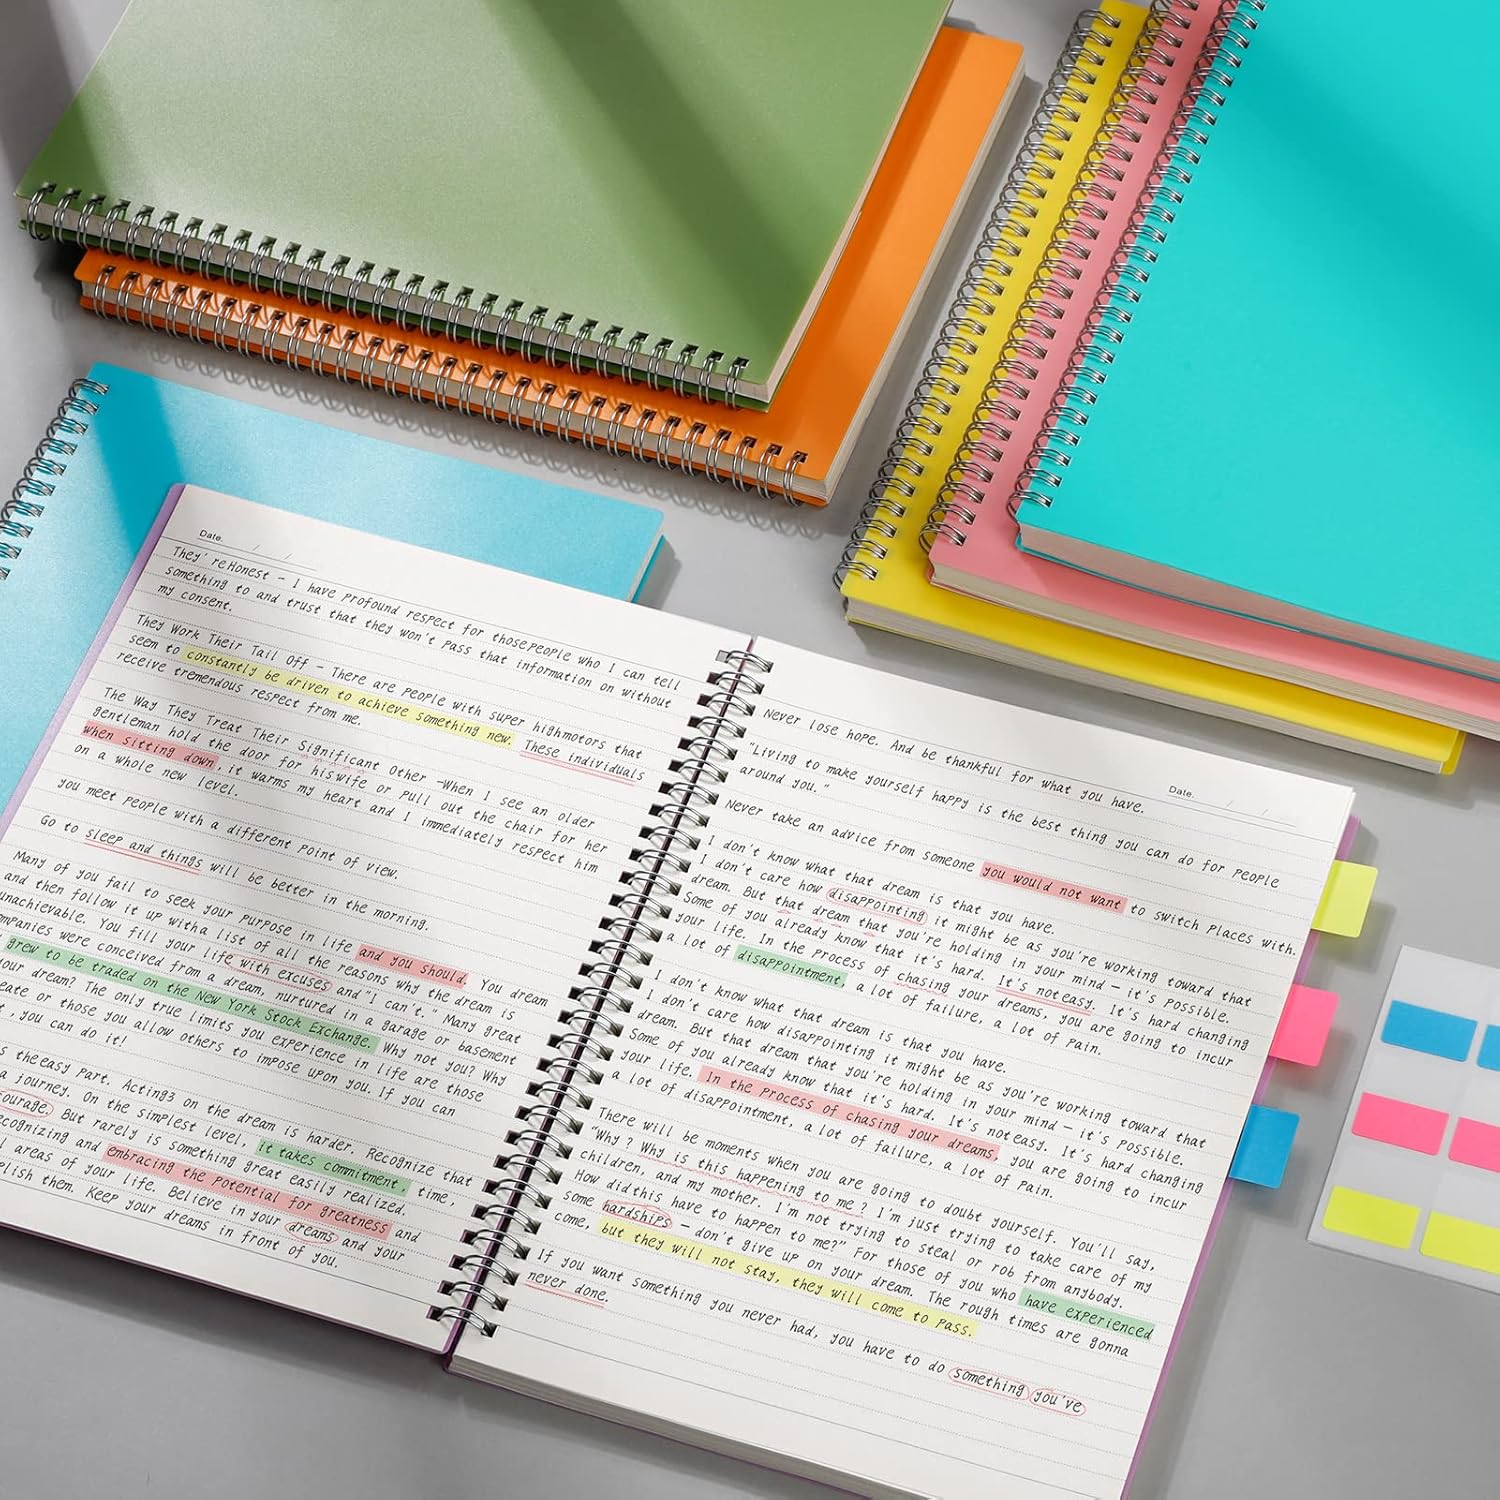 Date.
They' re Honest – I have profound respect for those people who I can tell
something to and trust that they won't pass that information on without
my consent.
They Work Their Tail Off – There are people with super highmotors that
seem to constantly be driven to achieve something new. These individuals
receive tremendous respect from me.
The Way They Treat Their Significant Other –When I see an older
gentleman hold the door for hiswife or pull out the chair for her
when sitting down, it warms my heart and I immediately respect him
on a whole new level.
you meet people with a different point of view.
Go to sleep and things will be better in the morning.
Many of you fail to seek your purpose in life and you should. You dream
and then follow it up witha list of all the reasons why the dream is
unachievable. You fill your life with excuses and "I can't." Many great
companies were conceived from a dream, nurtured in a garage or basement
grew to be traded on the New York Stock Exchange. Why not you? Why
your dream? The only true limits you experience in life are those
or those you allow others to impose upon you. If you can
, you can do it!
theeasy part. Acting3 on the dream is harder. Recognize that
a journey. On the simplest level, it takes commitment, time,
But rarely is something great easily realized.
and embracing the potential for greatness and
areas of your life. Believe in your dreams and your
them. Keep your dreams in front of you.
Date.
Never lose hope. And be thankful for what you have.
"Living to make yourself happy is the best thing you can do for people
around you."
Never take an advice from someone you would not want to switch places with.
I don't know what that dream is that you have.
I don't care how disappointing it might be as you're working toward that
dream. But that dream that you're holding in your mind – it's possible.
Some of you already know that it's hard. It's noteasy. It's hard changing
your life. In the process of chasing your dreams, you are going to incur
a lot of disappointment, a lot of failure, a lot of pain.
I don't know what that dream is that you have.
I don't care how disappointing it might be as you're working toward that
dream. But that dream that you're holding in your mind – it's possible.
Some of you already know that it's hard. It's noteasy. It's hard changing
your life. In the process of chasing your dreams, you are going to incur
a lot of disappointment, a lot of failure, a lot of pain.
There will be moments when you are going to doubt yourself. You'll say,
"Why? Why is this happening to me? I'm just trying to take care of my
children, and my mother. I'm not trying to steal or rob from anybody.
How didthis have to happen to me?" For those of you who have experienced
some hardships – don't give up on your dream. The rough times are gonna
come, but they will not stay, they will come to pass.
If you want something you never had, you have to do something you've
never done.